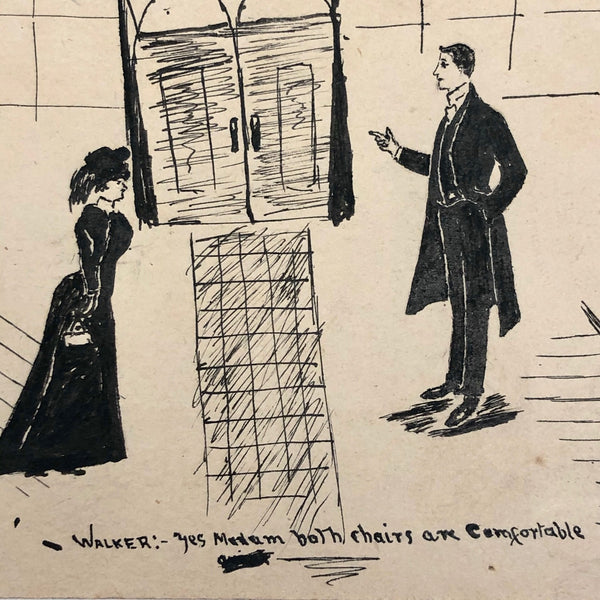 WALKER:- Yes Madam both chairs are Comfortable